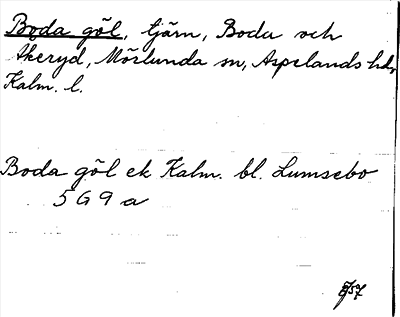 Boda göl, tjärn, Boda och
Åkeryd, Mörlunda sn, Aspelands hd,
Kalm. l.
Boda göl ek Kalm. bl. Lumsebo
5 G 9 a